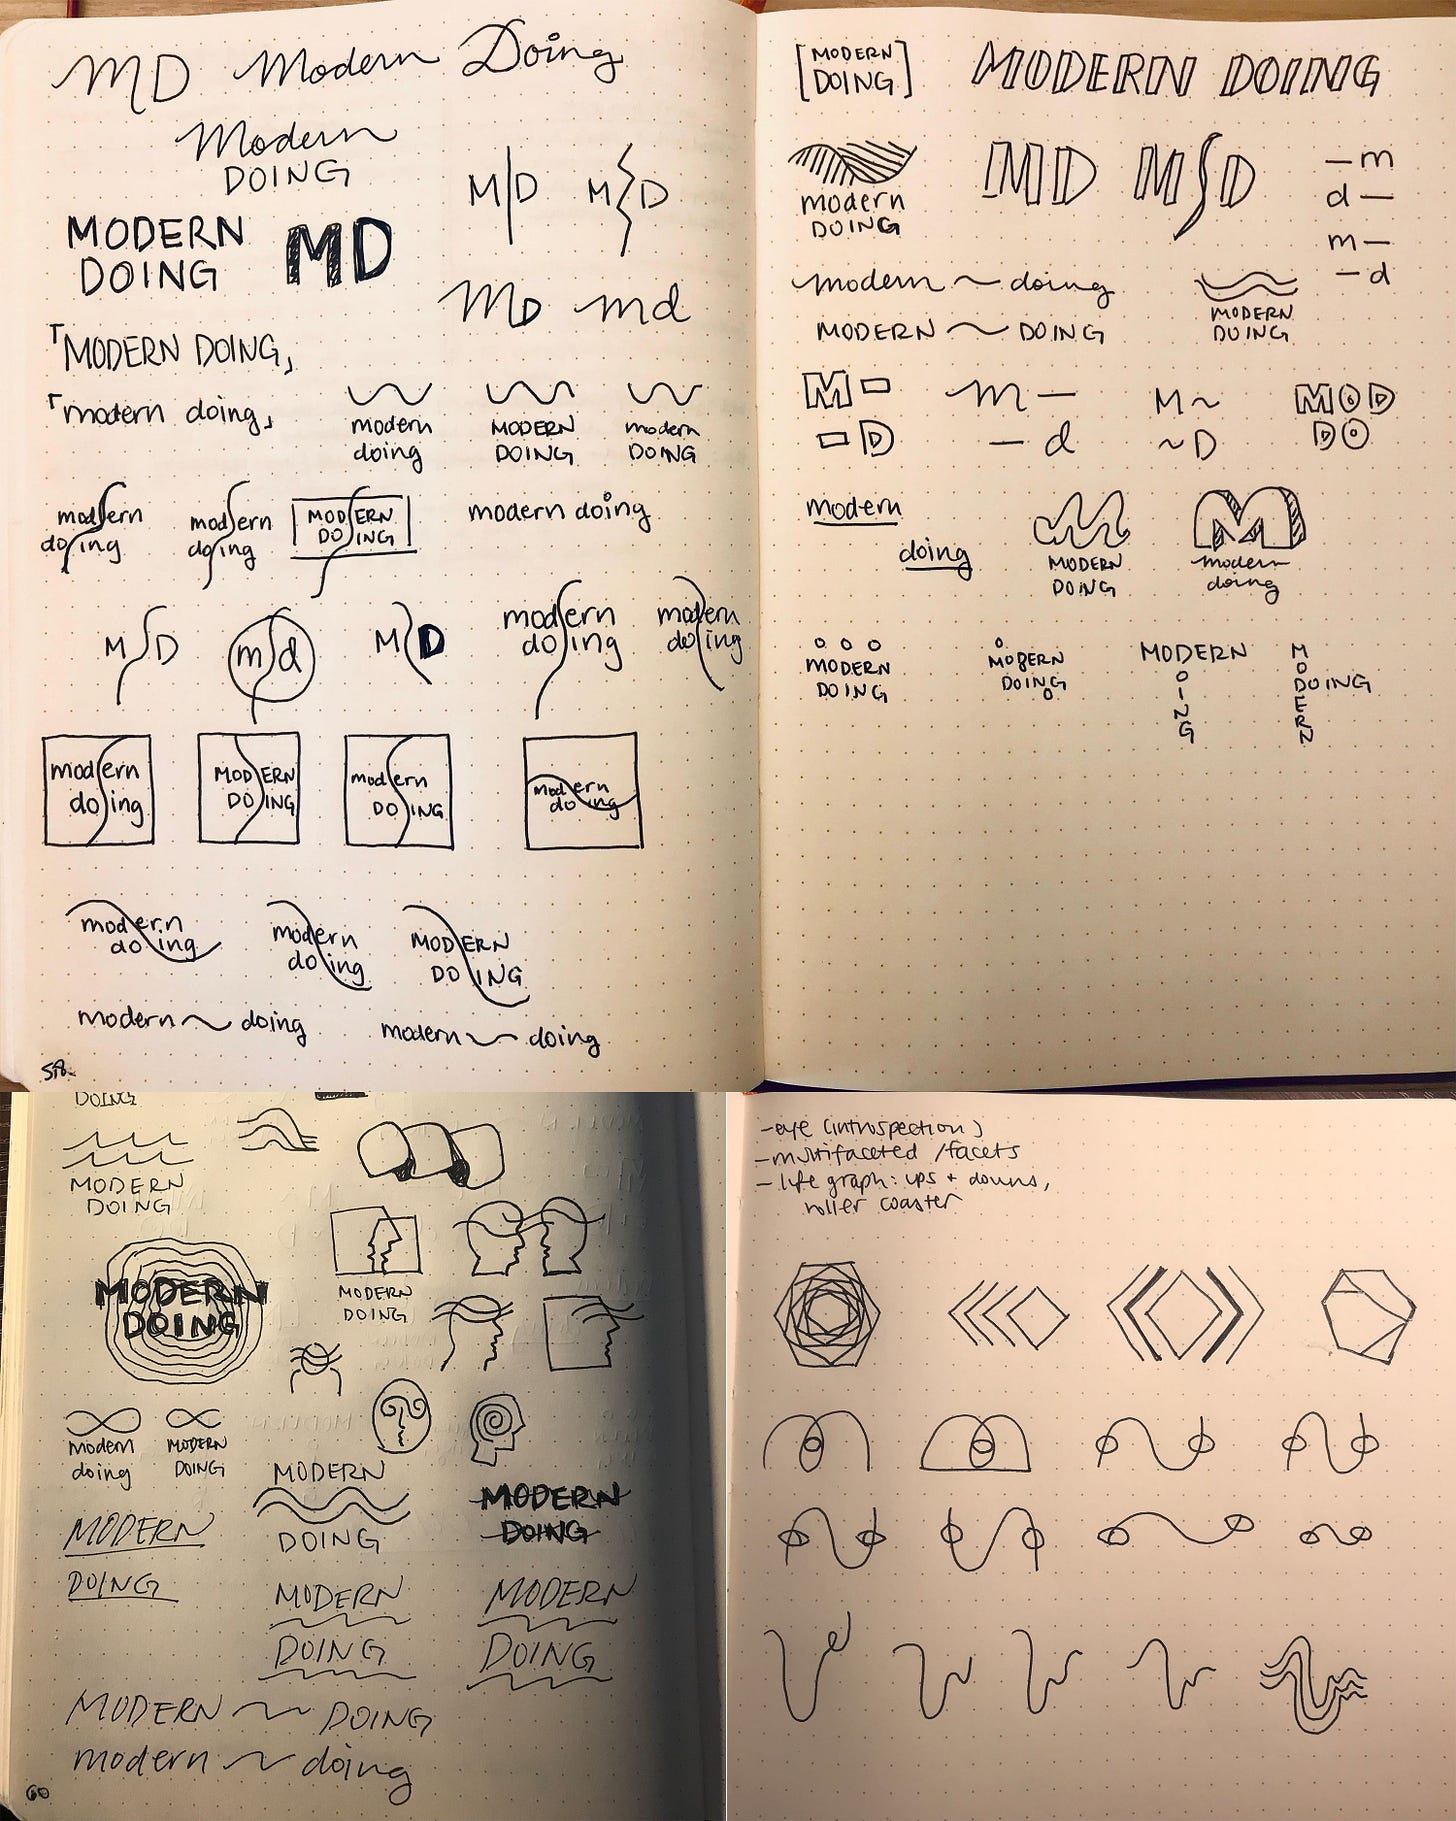 MD Modern Doing
Modern
DOING
MODERN
DOING
MD
M D
M D
MD md
「MODERN DOING」
「modern doing」
modern
doing
MODERN
DOING
modern
DOING
modern
doing
modern
doing
MODERN
DOING
modern doing
M D
m d
M D
modern
doing
modern
doing
modern
doing
MODERN
DOING
modern
DOING
modern
doing
modern
doing
modern
doing
MODERN
DOING
modern ~ doing
modern ~ doing
58.
[MODERN
DOING]
MODERN DOING
modern
DOING
MD
M D
—m
d—
m—
—d
modern ~ doing
MODERN ~ DOING
MODERN
DOING
M
D
m —
— d
M ~
~ D
MOD
DO
modern
doing
MODERN
DOING
M
modern
doing
MODERN
DOING
MODERN
DOING
MODERN
OING
MODERN
DOING
DOING
MODERN
DOING
MODERN
DOING
MODERN
DOING
modern
doing
MODERN
DOING
MODERN
DOING
MODERN
DOING
MODERN
DOING
MODERN
DOING
MODERN
DOING
MODERN ~ DOING
modern ~ doing
60
- eye (introspection)
- multifaceted / facets
- life graph: ups + downs,
roller coaster